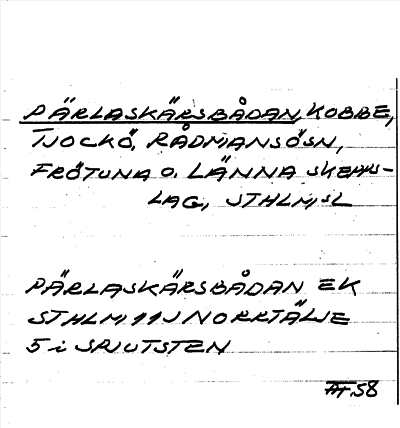 PÄRLASKÄRSBÅDAN, KOBBE,
TJOCKÖ, RÅDMANSÖSN,
FRÖTUNA O. LÄNNA SKEPPS-
LAG, STHLMSL
PÄRLASKÄRSBÅDAN EK
STHLM 11J NORRTÄLJE
5 i SPJUTSTEN
58